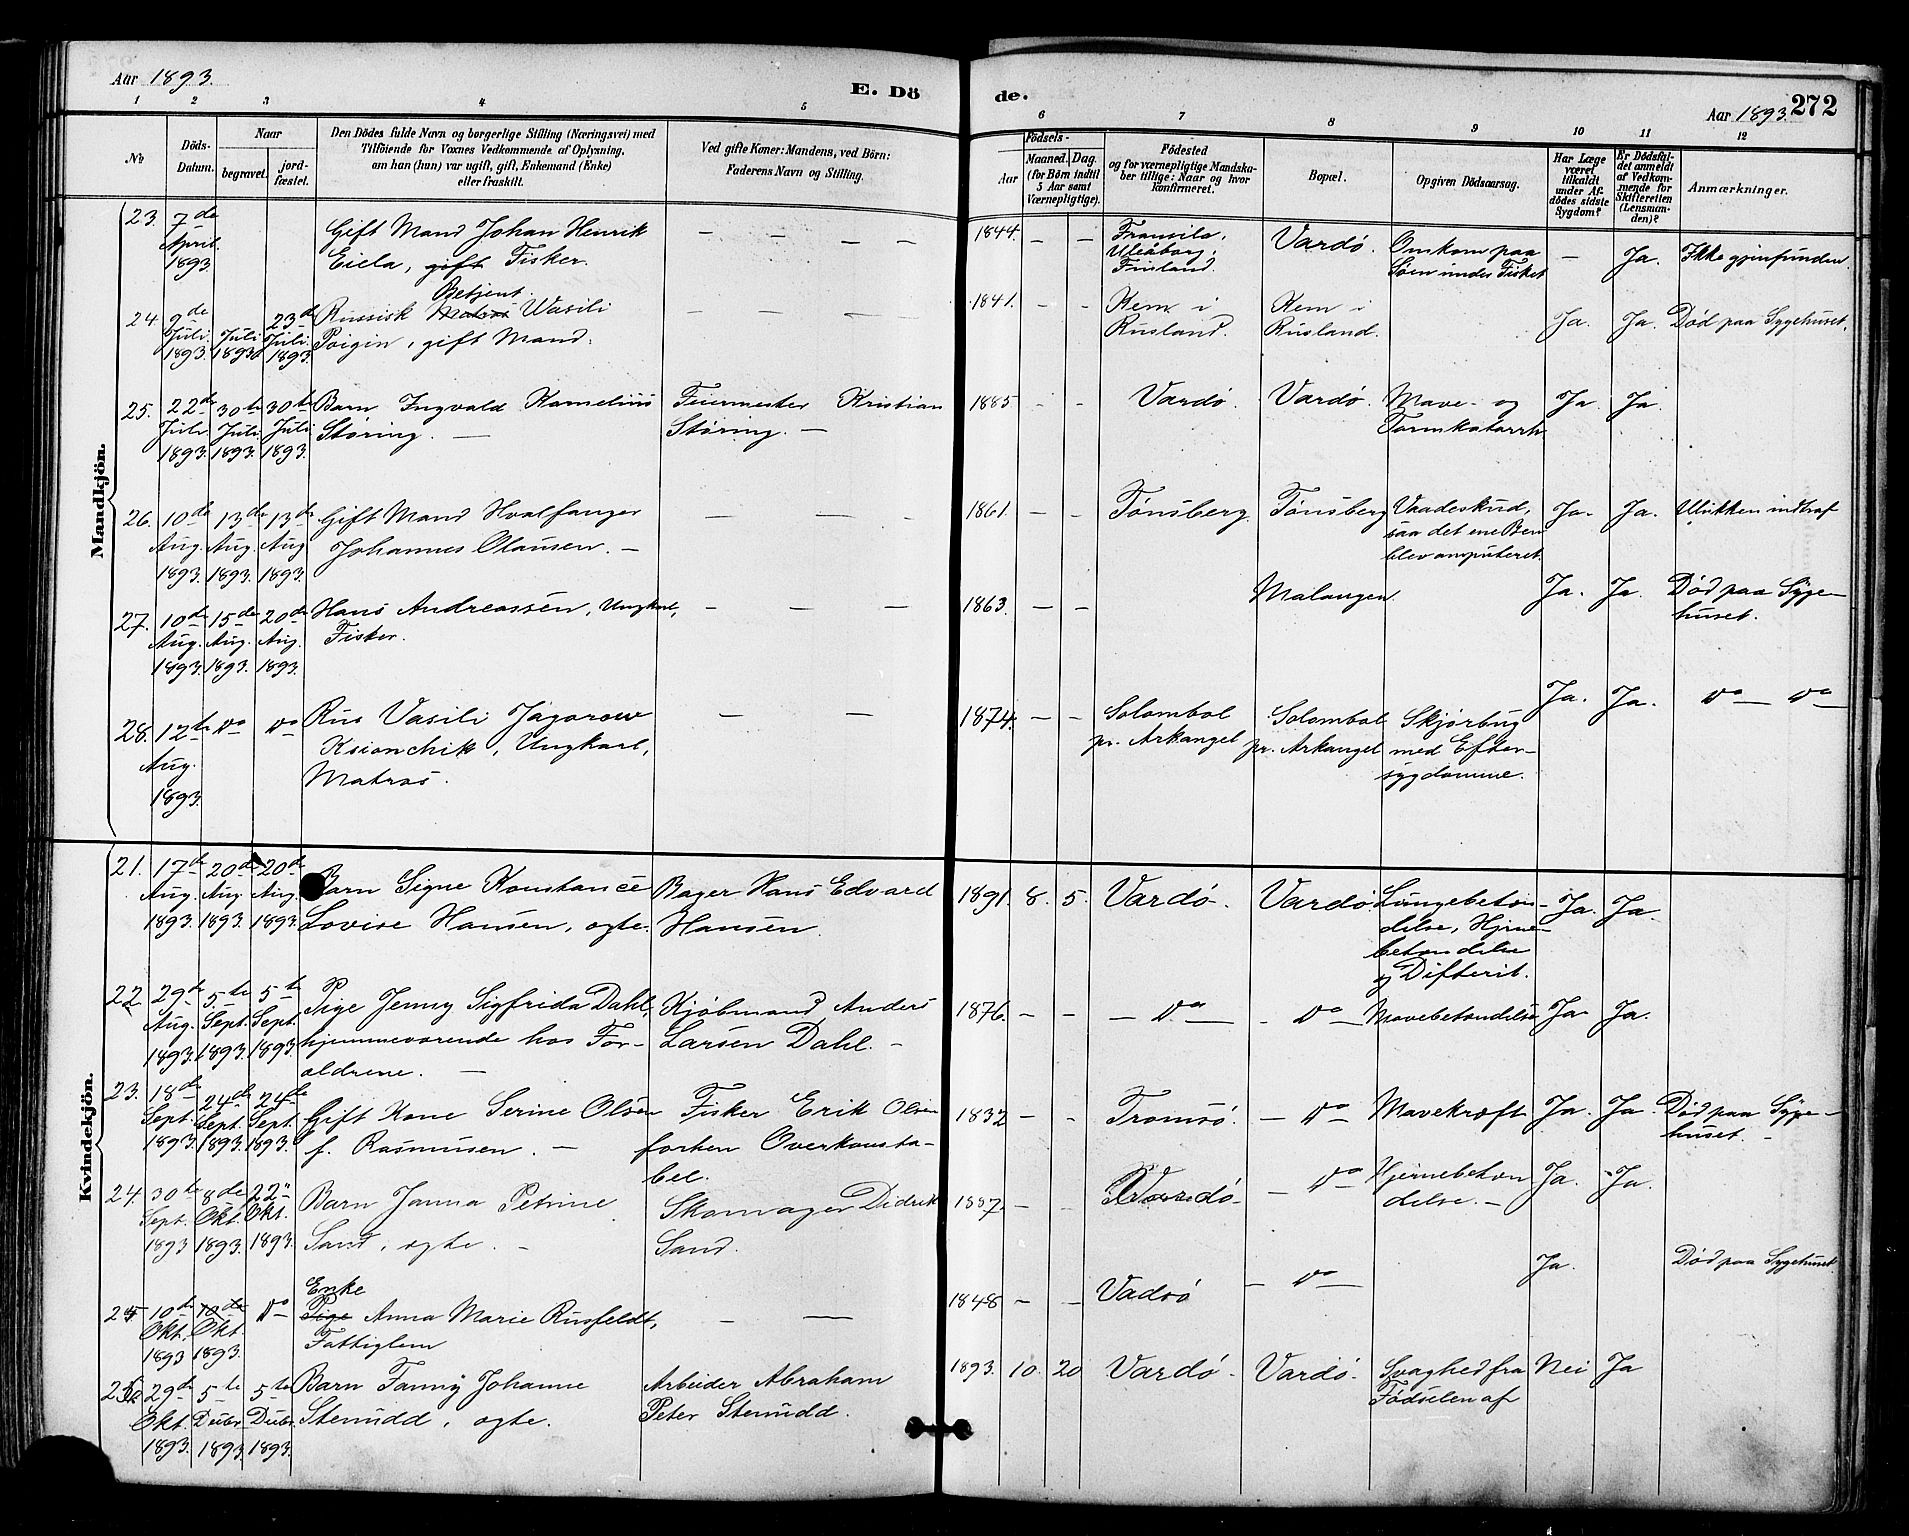 Aar 1893.
E. Dö
de.
Aar 1893.
272
1 2 3 4 5 6 7 8 9 10 11 12
No
Döds-
Datum.
Naar
begravet.
jord-
fæstet.
Den Dödes fulde Navn og borgerlige Stilling (Næringsvei) med
Tilföiende for Voxnes Vedkommende af Oplysning,
om han (hun) var ugift, gift, Enkemand (Enke)
eller fraskilt.
Ved gifte Koner: Mandens, ved Börn:
Faderens Navn og Stilling.
Födsels-
Aar
Maaned. Dag.
(for Börn indtil
5 Aar samt
Værnepligtige).
Födested
og for værnepligtige Mandska-
ber tillige: Naar og hvor
konfirmeret.
Bopæl.
Opgiven Dödsaarsag.
Har Læge
været
tilkaldt
under Af-
dödes sidste
Sygdom?
Er Dödsfal-
det anmeldt
af Vedkom-
mende for
Skifteretten
(Lensman-
den)?
Anmærkninger.
Mandkjön.
23. 7de April 1893. Gift Mand Johan Henrik
Eiela, gift Fisker. — — — —
1844. — — Fransila, Uleåborg, Finland. Vardø. Omkom paa
Søen under Fisket — Ja. Ikke gjenfunden.
24. 9de Juli 1893. Juli 1893 23de Juli 1893 Russisk Matros Betjent Wasili
Poigin, gift Mand. — — — —
1841. — — Kem i Rusland. Kem i Rusland. Ja. Ja. Død paa Sygehuset.
25. 22de Juli 1893. 30te Juli 1893. 30te Juli 1893. Barn Ingvald Kornelius
Støring. — Feiermester Kristian
Støring. —
1885 — — Vardø. Vardø. Mave- og
Tarmkatarrh Ja. Ja.
26. 10de Aug. 1893. 13de Aug. 1893. 13de Aug 1893. Gift Mand Hvalfanger
Johannes Olausen. — — — —
1861. — — Tønsberg. Tønsberg Vaadeskud,
saa det ene Ben
blev amputeret. Ja. Ja. Ulykken indtraf
27. 10de Aug. 1893. 15de Aug. 1893. 20de Aug. 1893. Hans Andreassen, Ungkarl,
Fisker. — — —
1863. — — Malangen Ja. Ja. Død paa Syge-
huset.
28. 12te Aug. 1893. Do Do Rus Vasili Jagorow
Ksionchik, Ungkarl,
Matros. — —
1874. — — Solombol
pr. Arkangel Solombol
pr. Arkangel Skjørbug
med Efter-
sygdomme. Ja. Ja. Do — Do
Kvindekjön.
21. 17de Aug. 1893. 20de Aug 1893. 20de Aug. 1893. Barn Signe Konstance
Lovise Hansen, ægte. Bager Hans Edvard
Hansen.
1891. 8. 5. Vardø. Vardø. Lungebeten-
delse, Hjerne-
betændelse
og Difterit. Ja. Ja.
22 29de Aug. 1893. 5te Sept. 1893. 5te Sept. 1893. Pige Jenny Sigfrida Dahl,
hjemmeværende hos For-
ældrene. — Kjøbmand Anders
Larsen Dahl. —
1876. — — — Do — — Do — Mavebetændelse Ja. Ja.
23. 18de Sept. 1893. 24de Sept. 1893. 24de Sept. 1893. Gift Kone Serine Olsen
f. Rasmusen. — Fisker Erik Olsen
forhen Overkonsta-
bel.
1832 — — Tromsø. — Do Mavekræft Ja. Ja. Død paa Syge-
huset. —
24. 30te Sept. 1893 8de Okt. 1893. 22de Okt. 1893. Barn Janna Petrine
Sand, ægte. — Skomager Didrik
Sand.
1887. — — Vardø — — Do Hjernebetæn
delse. — Ja. Ja.
25 10de Okt. 1893 10de Okt. 1893. Do Enke
Pige Anna Marie Rusfeldt,
Fattiglem — —
1848 — — Vadsø — Do — Ja. Død paa Sygehuset.
26 29de Okt. 1893. 5te Decbr. 1893 5te Decbr. 1893. Barn Fanny Johanne
Stenudd, ægte. Arbeider Abraham
Peter Stenudd.
1893. 10. 20 Vardø. Vardø. Svaghed fra
Fødselen af Nei Ja